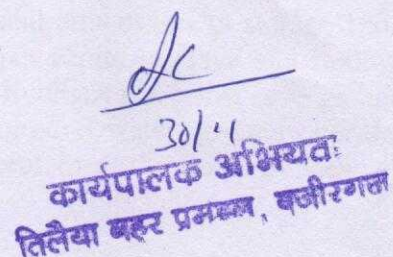 30/11
कार्यपालक अभियंता
तिलैया नहर प्रमण्डल, वजीरगंज